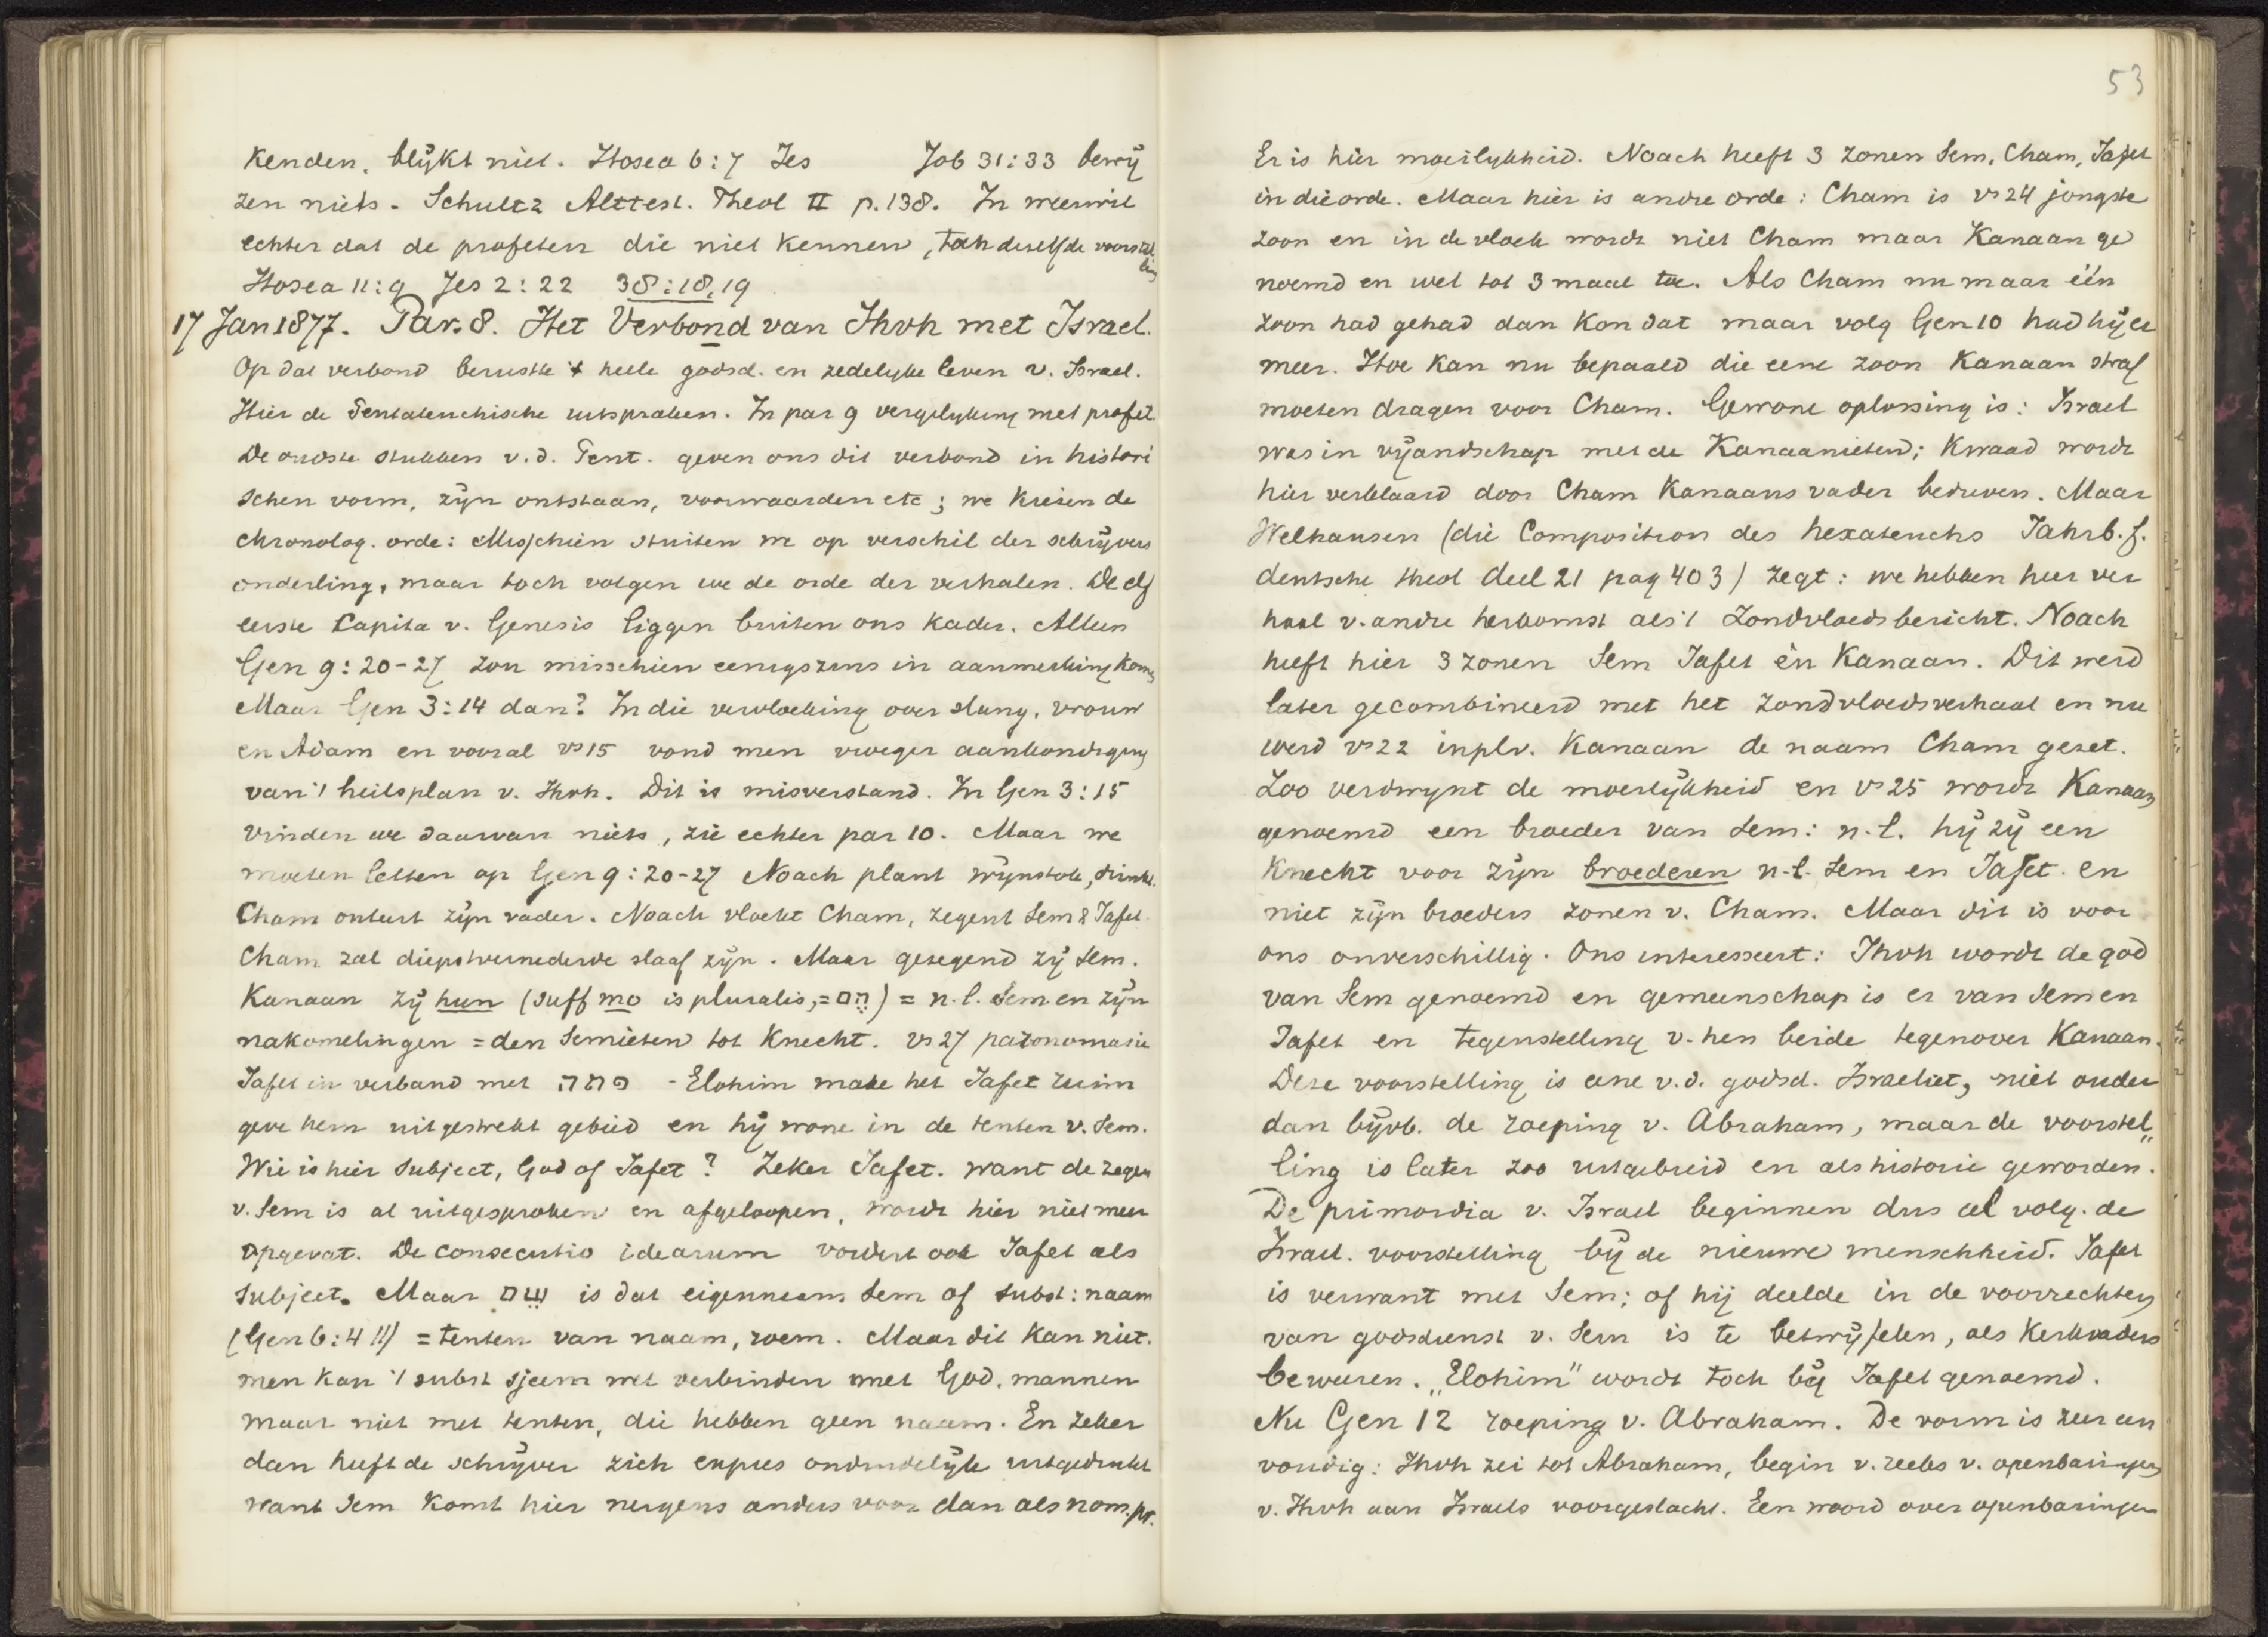 kenden, blijkt niet. Hosea 6:7 Jes Job 31:33 bewij
zen niets. Schultz Alttest. Theol II p. 138. In weerwil
echter dat de profeten die niet kennen, toch dezelfde voorstel
ling
Hosea 11:9 Jes 2:22 38:18,19
17 Jan 1877. Par. 8. Het Verbond van Jhvh met Israel.
Op dat verbond berustte 't heele godsd. en zedelyke leven v. Israel.
Hier de Pentateuchische uitspraken. In par 9 vergelyking met profet.
De oudste stukken v.d. Pent. geven ons dit verbond in histori
schen vorm, zijn ontstaan, voorwaarden etc; we kiezen de
chronolog. orde: Misschien stuiten we op verschil der schrijvers
onderling, maar toch volgen we de orde der verhalen. De elf
eerste Capita v. Genesis liggen buiten ons kader. Alleen
Gen 9:20-27 zou misschien eenigszins in aanmerking komen
Maar Gen 3:14 dan? In die vervloeking over slang, vrouw
en Adam en vooral vs 15 vond men vroeger aankondiging
van 't heilsplan v. Jhvh. Dit is misverstand. In Gen 3:15
vinden we daarvan niets, zie echter par 10. Maar we
moeten letten op Gen 9:20-27 Noach plant wijnstok, drinkt.
Cham onteert zijn vader. Noach vloekt Cham, zegent Sem & Jafet
Cham zal diepstvernederde slaaf zijn. Maar gezegend zij Sem.
Kanaan zij hun (suff mo is pluralis, = הֶם) = n.l. Sem en zijn
nakomelingen = den Semieten tot knecht. vs 27 paronomasie
Jafet in verband met פתה - Elohim make het Jafet ruim
geve hem uitgestrekt gebied en hij wone in de tenten v. Sem.
Wie is hier subject, God of Jafet? Zeker Jafet. want de zegen
v. Sem is al uitgesproken en afgeloopen, wordt hier niet meer
opgevat. De consecutio idearum vordert ook Jafet als
subject. Maar שֵׁם is dat eigennaam Sem of subst: naam
(Gen 6:4 !!) = tenten van naam, roem. Maar dit kan niet.
men kan 't subst sjeem wel verbinden met God, mannen
maar niet met tenten, die hebben geen naam. En zeker
dan heeft de schrijver zich expres onduidelijk uitgedrukt
want Sem komt hier nergens anders voor dan als nom. pr.
53
Er is hier moeilykheid. Noach heeft 3 zonen Sem, Cham, Jafet
in die orde. Maar hier is andre orde: Cham is vs 24 jongste
zoon en in de vloek wordt niet Cham maar Kanaan ge
noemd en wel tot 3 maal toe. Als Cham nu maar één
zoon had gehad dan kon dat maar volg Gen 10 had hij er
meer. Hoe kan nu bepaald die eene zoon Kanaan straf
moeten dragen voor Cham. Gewone oplossing is: Israel
was in vijandschap met de Kanaanieten; kwaad wordt
hier verklaard door Cham Kanaans vader bedreven. Maar
Welhausen (die Composition des hexateuchs Jahrb. f.
deutsche theol deel 21 pag 403) zegt: we hebben hier ver
haal v. andre herkomst als 't zondvloedsbericht. Noach
heeft hier 3 zonen Sem Jafet én Kanaan. Dit werd
later gecombineerd met het zondvloedsverhaal en nu
werd vs 22 inplv. Kanaan de naam Cham gezet.
Zoo verdwynt de moeilijkheid en vs 25 wordt Kanaan
genoemd een broeder van Sem: n.l. hij zij een
knecht voor zijn broederen n.l. Sem en Jafet. en
niet zijn broeders zonen v. Cham. Maar dit is voor
ons onverschillig. Ons interesseert: Jhvh wordt de god
van Sem genoemd en gemeenschap is er van Sem en
Jafet en tegenstelling v. hen beide tegenover Kanaan.
Deze voorstelling is eene v.d. godsd. Israeliet, niet ouder
dan bijvb. de roeping v. Abraham, maar de voorstel„
ling is later zoo uitgebreid en als historie geworden.
De primordia v. Israel beginnen dus al volg. de
Israel. voorstelling bij de nieuwe menschheid. Jafet
is verwant met Sem; of hij deelde in de voorrechten
van godsdienst v. Sem is te betwijfelen, als Kerkvaders
beweren. „Elohim" wordt toch bij Jafet genoemd.
Nu Gen 12 roeping v. Abraham. De vorm is zeer een
voudig: Jhvh zei tot Abraham, begin v. reeks v. openbaringen
v. Jhvh aan Israels voorgeslacht. Een woord over openbaringen